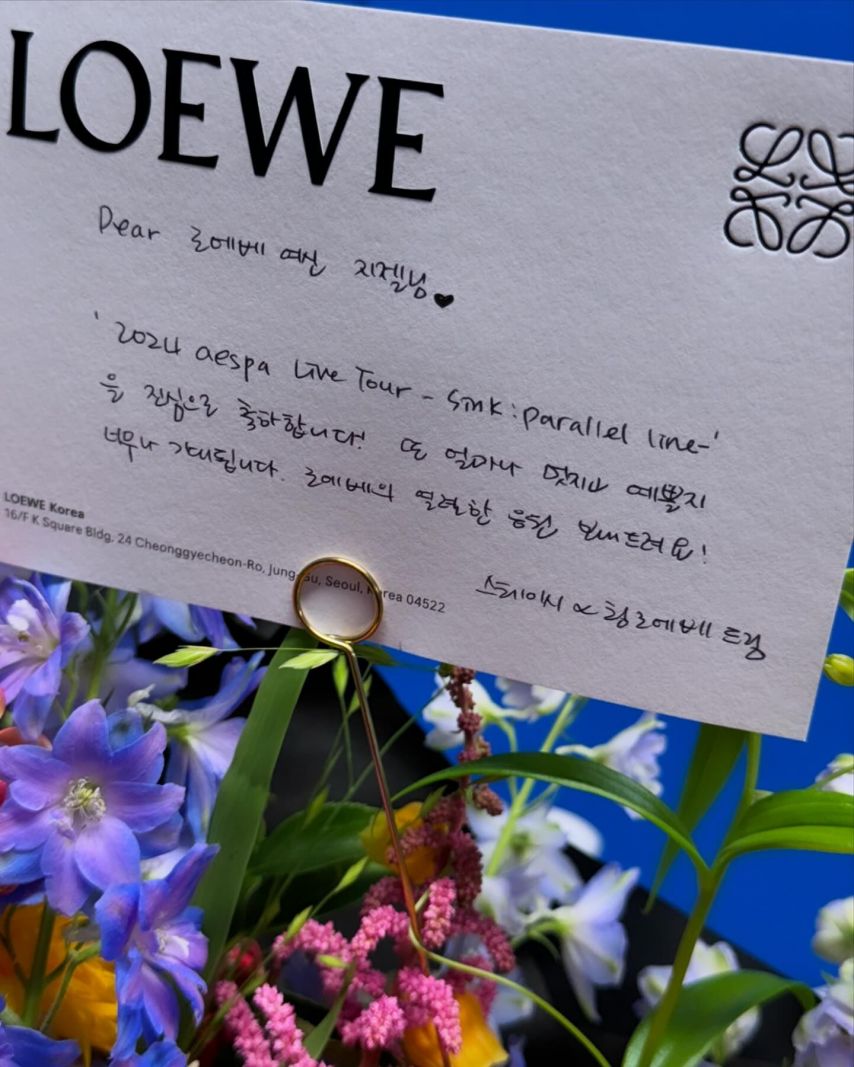 LOEWE
Dear 로에베 여신 지젤님♥
'2024 aespa Live Tour - Synk : parallel line-'
을 진심으로 축하합니다! 또 얼마나 멋지고 예쁠지
너무나 기대됩니다. 로에베의 열렬한 응원 보내드려요!
LOEWE Korea
16/F K Square Bldg, 24 Cheonggyecheon-Ro, Jung-Gu, Seoul, Korea 04522
로에베 드림